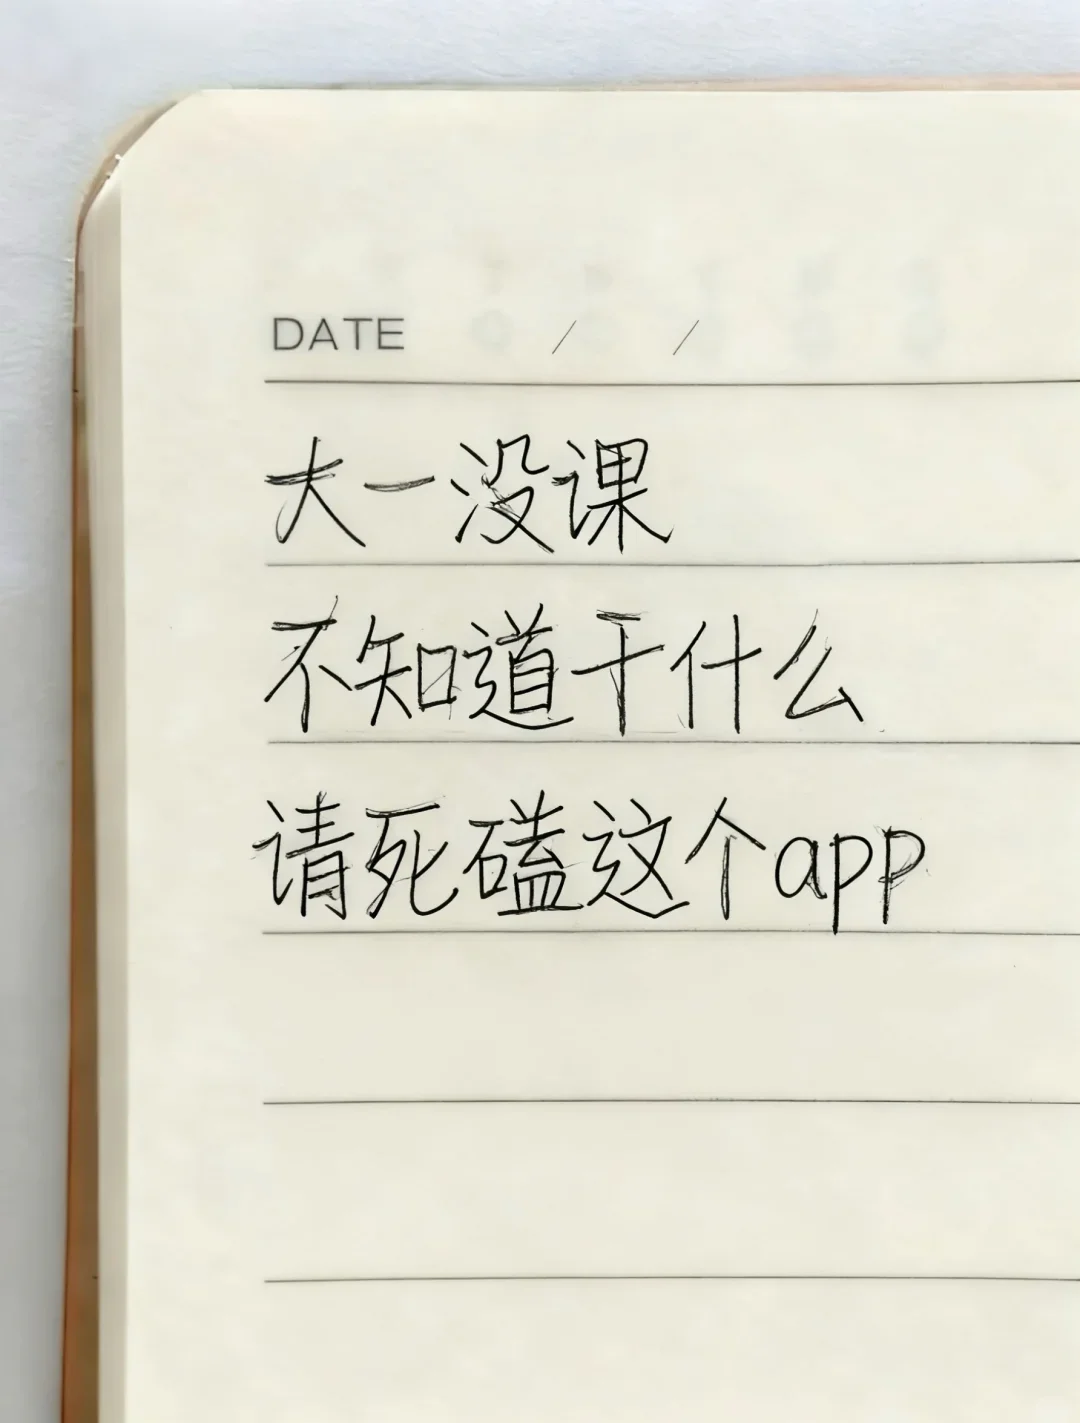 DATE / /
大一没课
不知道干什么
请死磕这个app